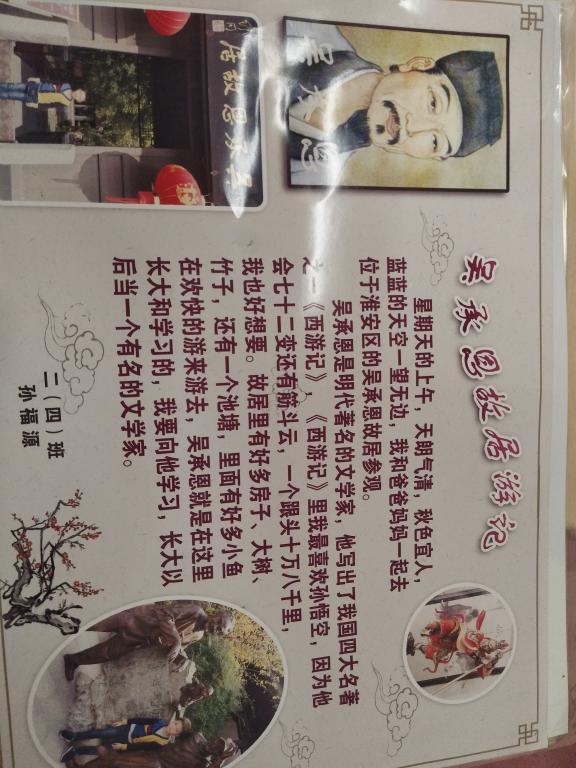 吴承恩故居游记
星期天的上午，天朗气清，秋色宜人，
蓝蓝的天空一望无边，我和爸爸妈妈一起去
位于淮安区的吴承恩故居参观。
吴承恩是明代著名的文学家，他写出了我国四大名著
之一《西游记》，《西游记》里我最喜欢孙悟空，因为他
会七十二变还有筋斗云，一个跟头十万八千里，
我也好想要。故居里有好多房子、大树、
竹子，还有一个池塘，里面有好多小鱼
在欢快的游来游去，吴承恩就是在这里
长大和学习的，我要向他学习，长大以
后当一个有名的文学家。
二（四）班
孙福源
吴承恩
居故恩承吴